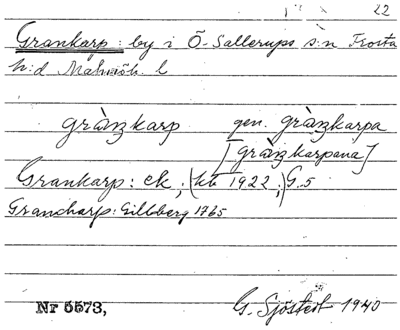 22
Grankarp: by i Ö. Sallerups s:n Frosta
h:d Malmöh. l
grànzkarp gen. grànzkarpa
[grànzkarpana]
Grankarp: ek; (kb 1922;) G. 5
Grancharp: Gillberg 1765
Nr 5573, G. Sjöstedt 1940